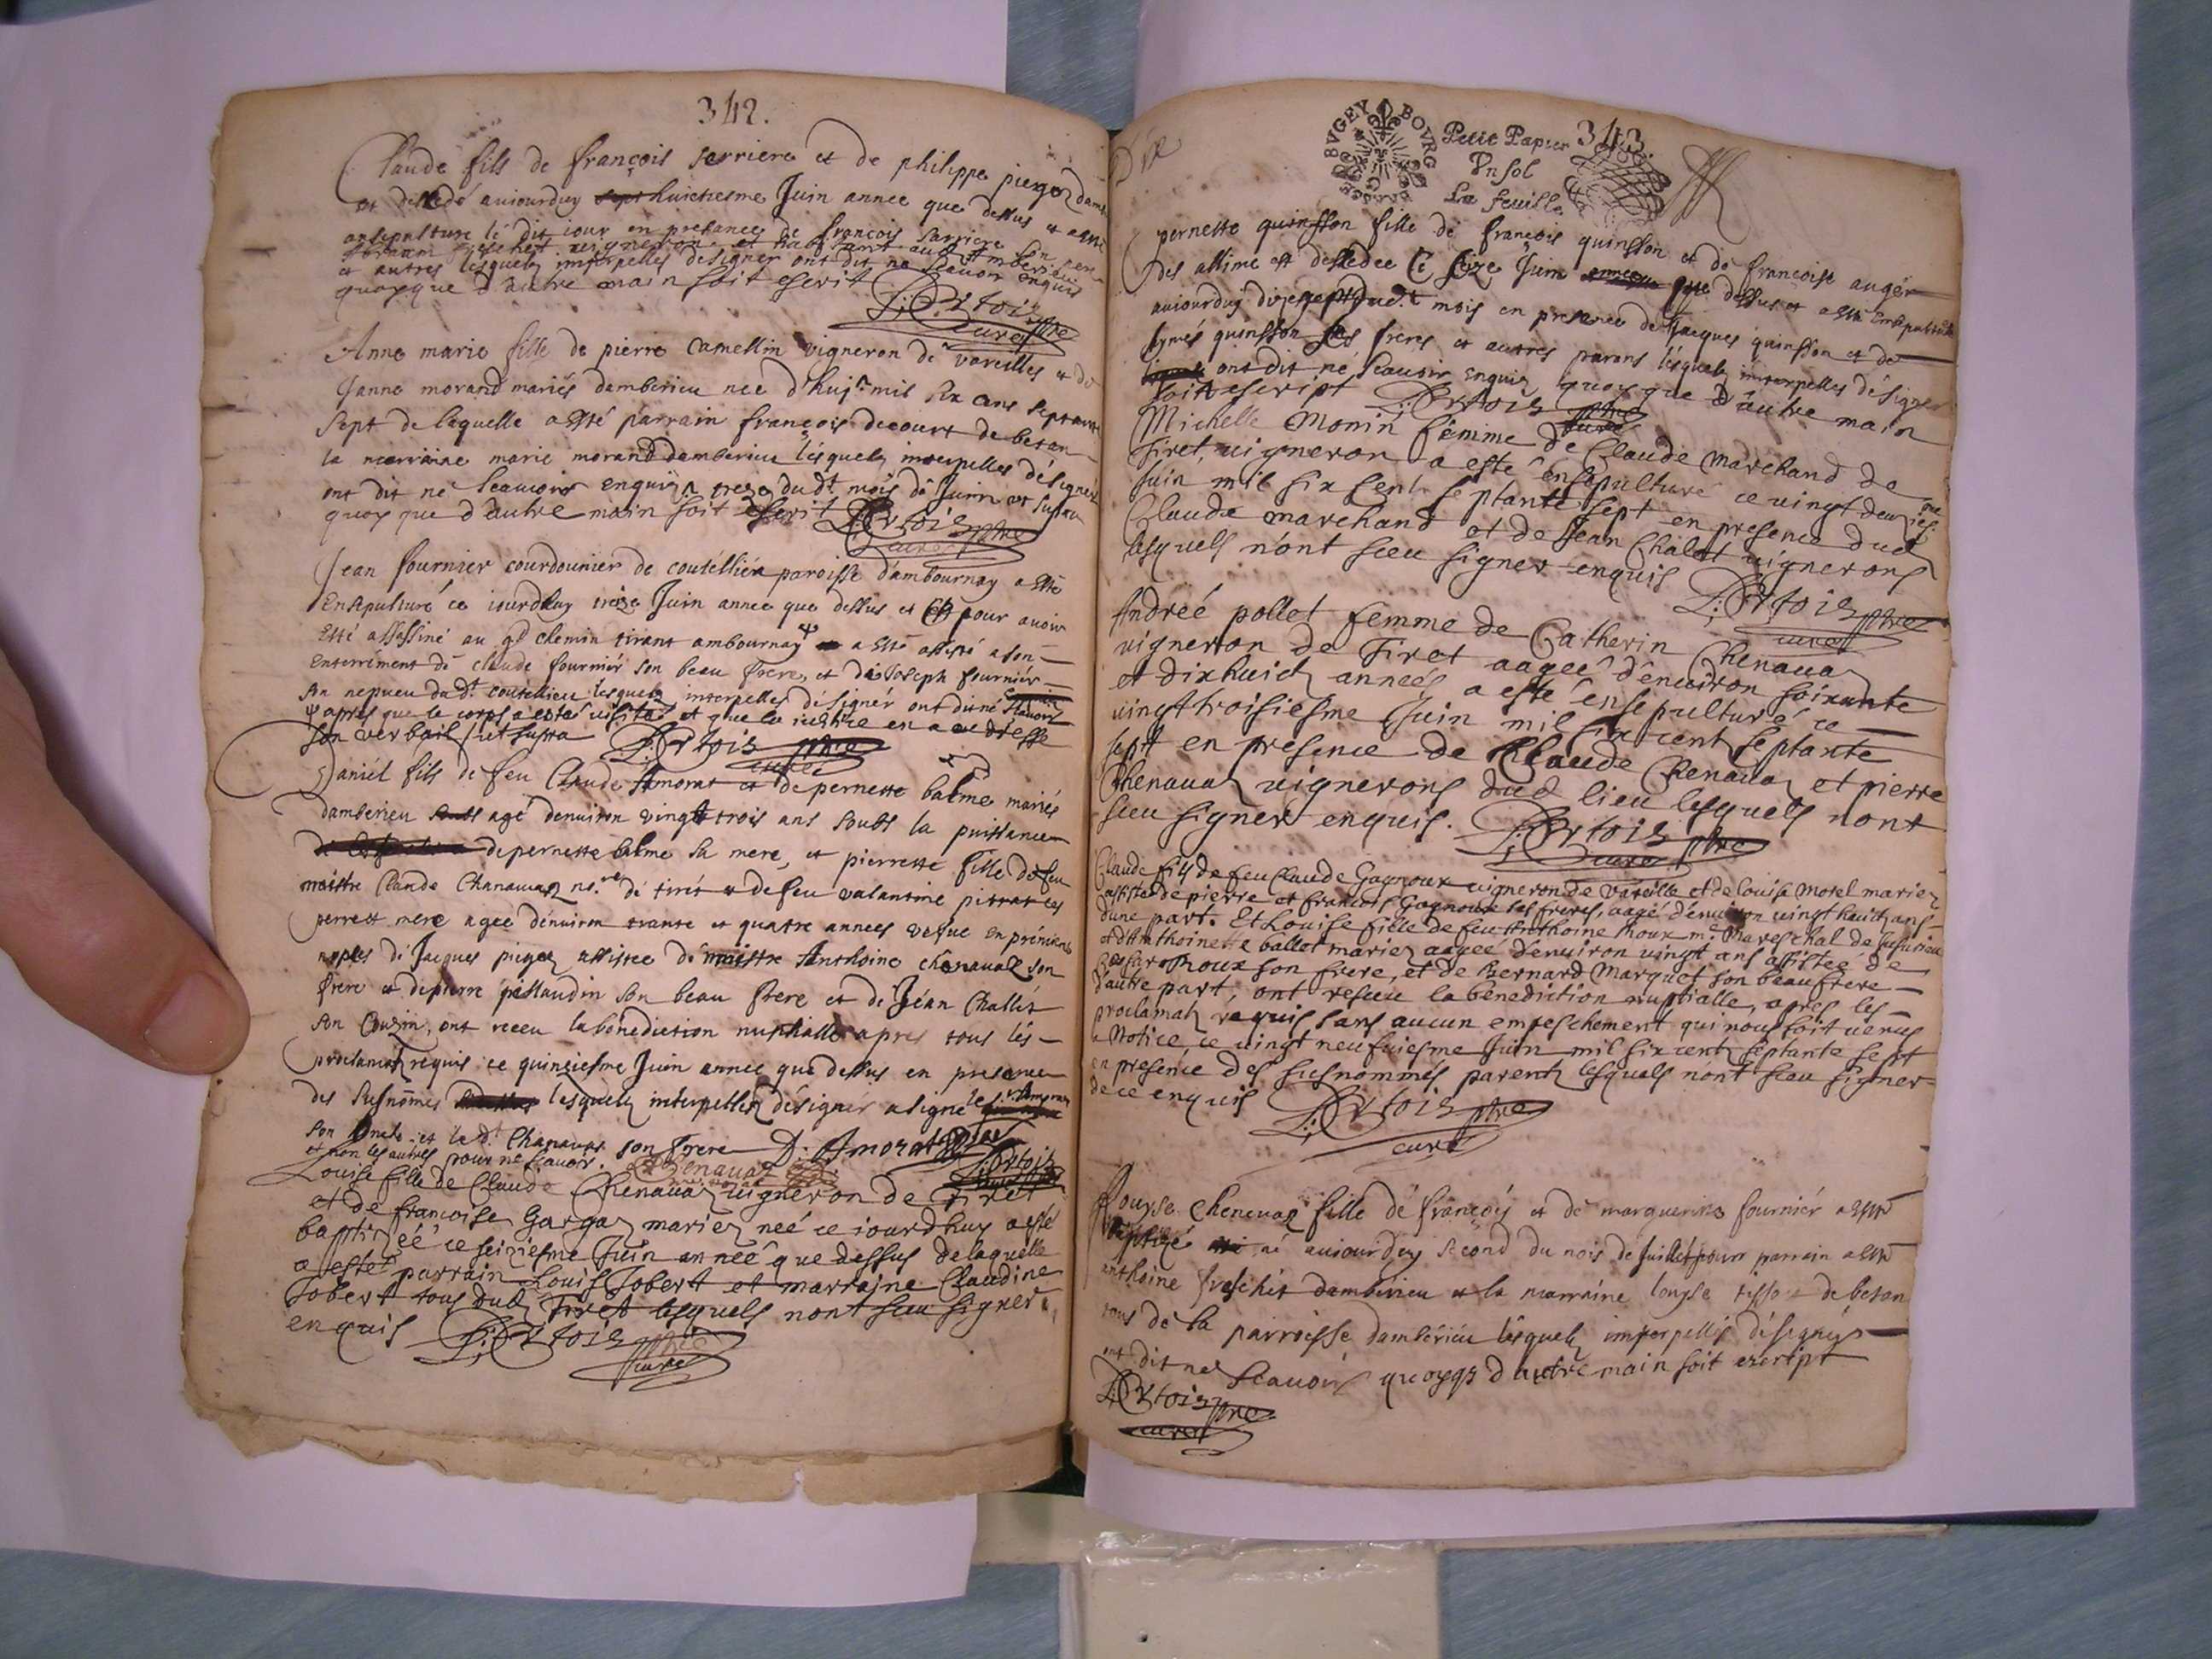 342.
Claude fils de françois sarriere et de philippe pieyoz damb
est dessedé auiourduy sept huictiesme Juin annee que dessus et a esté
ensepulture le dit iour en presance de françois sarriere son pere
et habitant aud Amberieu
et autres lesquels interpelles designer ont dit ne scavoir enquis
quoyque d'autre main soit escrit
D: Ortois ptre
curé
Anne marie fille de pierre Camellin vigneron de vareilles et de
Janne morand mariés damberieu nee d'huy mil six cens septante
sept de laquelle a esté parrain françois decourt de betan
la marraine marie morand damberieu lesquels interpelles designer
ont dit ne scauoir enquis treze dud.t mois de Juin ut supra
quoy que d'autre main soit escrit D: Ortois ptre
curé
Jean fournier courdounier de coutellieu paroisse d'ambournay a esté
Ensepulturé ce iourdhuy treize Juin annee que dessus et pour avoir
Esté assassiné au gd chemin tirant ambournay a esté assisté a son
Enterrement de claude fournier son beau frere, et de Joseph fournier
son nepueu du d.t coutellieu lesquels interpelles designer ont dit né scauoir
apres que le corps a esté uisité et que la iustice en a edressé
son verbail, ut supra D: Ortois ptre
curé
Daniel fils de feu Claude Amorat et de pernette balme mariés
damberieu agé denuiron vingt trois ans soubs la puissance
de pernette balme sa mere, et pierrette fille de feu
maistre Claude Chanauaz no.re de tiret et de feu valantine pitrat ces
perre et mere agee denuiron trante et quatre annees vefue en prémieres
nopces de Jacques pieyoz assistee de maistre Anthoine chenauaz son
frere et de pierre pessaudin son beau frere et de Jéan Challes
son Cousin, ont receu la bénédiction nuptialle apres tous les
proclamats requis ce quinziesme Juin annee que dessus en presence
des susnômés lesquels interpelles designer a signé le s.r Amorat
son oncle et le d.t Chanauaz son frere D: Amorat
et non les autres pour ne scauoir. Chenauaz D: Ortois
Louise fille de Claude Chenauaz uigneron de Tiret
et de francoise Gargaz mariez neé ce iourdhuy a esté
baptizéé ce seiziesme Juin anneé que dessus de laquelle
a esté parrain Louis Jobert et marraine Claudine
Jobert tous dud Tiret lesquels nont sceu signer
enquis D: Ortois ptre
curé
BVGEY BOVRG
BRESSE
Petit Papier 343.
Vn sol
La feuille
pernette quinsson fille de françois quinsson et de francoise auger
des allime est dessedee le seize Juin annee que dessus et a esté Ensepulturée
auiourduy dixsept dud.t mois en presence de Jacques quinsson et de
quinsson ses freres et autres parans lesquels interpelles designer
ont dit né scauoir enquis quoy que d'autre main
soit escript D: Ortois ptre
curé
Michelle Monin femme de Claude Marchand de
Tiret, uigneron a esté ensepulturé ce vingt deuxies.me
Juin mil six cent septante sept en presence dud
Claude marchand et de Jean Chalet uignerons
lesquels n'ont sceu signer enquis
D: Ortois ptre
curé
Andreé pollet femme de Catherin Chenauaz
uigneron de Tiret aageé d'enuiron soixante
et dixhuict anneés a esté ensepulturé ce
uingttroisiesme Juin mil six cent septante
sept en presence de Claude Chenauaz et pierre
Chenauaz uignerons dud lieu lesquels nont
sceu signer enquis. D: Ortois ptre
curé
Claude filz de feu Claude Gagnoux uigneron de Vareille et de louise Morel mariez
assisté de pierre et francois Gagnoux ses freres, aagé d'enuiron uingt heuict ans
d'une part. Et Louise fille de feu Anthoine Roux m.e Mareschal de Jujurieu
et d'Anthoinette ballet mariez aageé d'enuiron uingt ans assisteé de
Cesar Roux son frere, et de Bernard Marquet son beaufrere
d'autre part, ont reseu la benediction nuptialle, apres les
proclamatz requis sans aucun empeschement qui nous soit uenus
a Notice, ce uingt neufuiesme Juin mil six cent septante sept
en presence des susnommés parentz lesquels n'ont sceu signer
de ce enquis D: Ortois ptre
curé
Louyse Chenevaz fille dé françoys et dé marguerite fournier a esté
baptizé né auiourduy second du mois de Juillet pour parrain a esté
anthoine freschet dambérieu et la marraine louyse tissot de betan
tous de la parroisse dambérieu lesquels imterpellés designer
ont dit ne scauoir quoyqe d'autre main soit exeript
D: Ortois ptre
curé